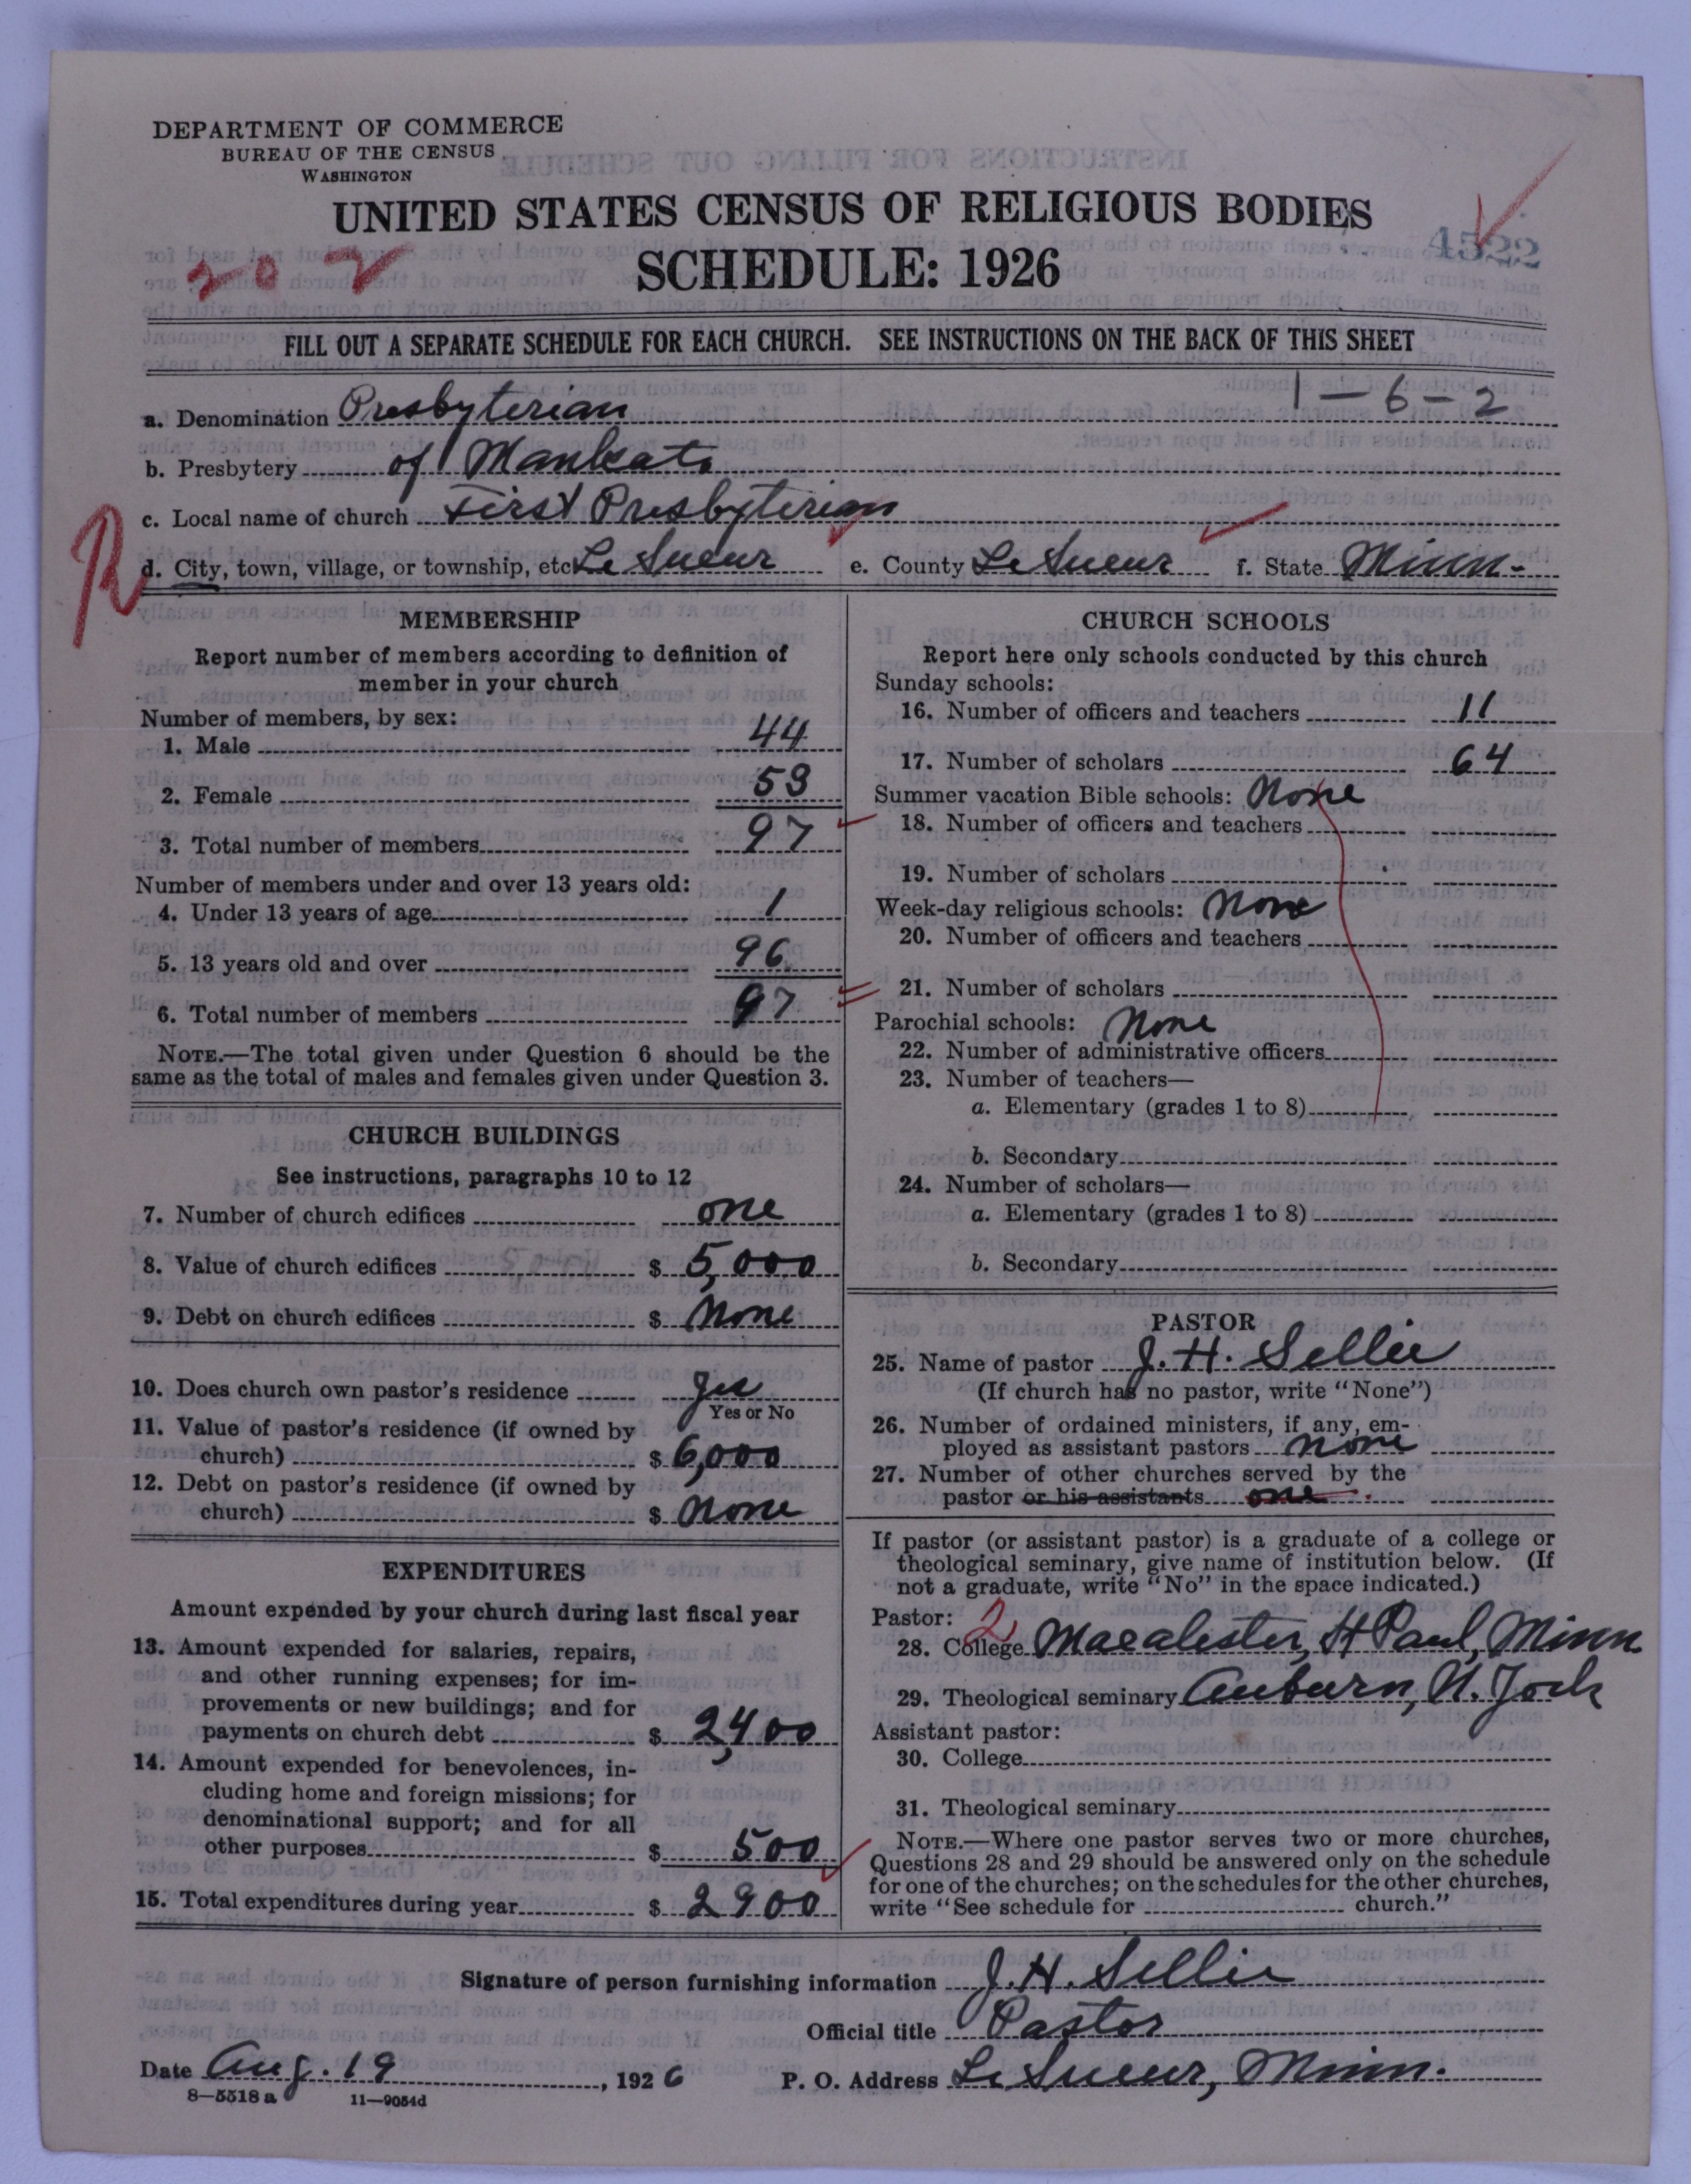 DEPARTMENT OF COMMERCE
BUREAU OF THE CENSUS
WASHINGTON
UNITED STATES CENSUS OF RELIGIOUS BODIES
SCHEDULE: 1926
202
4522
FILL OUT A SEPARATE SCHEDULE FOR EACH CHURCH. SEE INSTRUCTIONS ON THE BACK OF THIS SHEET
1-6-2
a. Denomination Presbyterian
b. Presbytery of Mankato
c. Local name of church First Presbyterian
R
d. City, town, village, or township, etc. Le Sueur e. County Le Sueur f. State Minn.
MEMBERSHIP
Report number of members according to definition of
member in your church
Number of members, by sex:
1. Male 44
2. Female 53
3. Total number of members 97
Number of members under and over 13 years old:
4. Under 13 years of age 1
5. 13 years old and over 96
6. Total number of members 97
NOTE.—The total given under Question 6 should be the
same as the total of males and females given under Question 3.
CHURCH BUILDINGS
See instructions, paragraphs 10 to 12
7. Number of church edifices one
8. Value of church edifices $ 5,000
9. Debt on church edifices $ None
10. Does church own pastor's residence Yes
Yes or No
11. Value of pastor's residence (if owned by
church) $ 6,000
12. Debt on pastor's residence (if owned by
church) $ None
EXPENDITURES
Amount expended by your church during last fiscal year
13. Amount expended for salaries, repairs,
and other running expenses; for im-
provements or new buildings; and for
payments on church debt $ 2,400
14. Amount expended for benevolences, in-
cluding home and foreign missions; for
denominational support; and for all
other purposes $ 500
15. Total expenditures during year $ 2900
CHURCH SCHOOLS
Report here only schools conducted by this church
Sunday schools:
16. Number of officers and teachers 11
17. Number of scholars 64
Summer vacation Bible schools: None
18. Number of officers and teachers
19. Number of scholars
Week-day religious schools: None
20. Number of officers and teachers
21. Number of scholars
Parochial schools: None
22. Number of administrative officers
23. Number of teachers—
a. Elementary (grades 1 to 8)
b. Secondary
24. Number of scholars—
a. Elementary (grades 1 to 8)
b. Secondary
PASTOR
25. Name of pastor J. H. Sellie
(If church has no pastor, write "None")
26. Number of ordained ministers, if any, em-
ployed as assistant pastors none
27. Number of other churches served by the
pastor or his assistants one
If pastor (or assistant pastor) is a graduate of a college or
theological seminary, give name of institution below. (If
not a graduate, write "No" in the space indicated.)
Pastor: 2
28. College Macalester, St Paul, Minn
29. Theological seminary Auburn, N. York
Assistant pastor:
30. College
31. Theological seminary
NOTE.—Where one pastor serves two or more churches,
Questions 28 and 29 should be answered only on the schedule
for one of the churches; on the schedules for the other churches,
write "See schedule for church."
Signature of person furnishing information J. H. Sellie
Official title Pastor
Date Aug. 19, 1926 P. O. Address Le Sueur, Minn.
8—5518 a 11—9054d